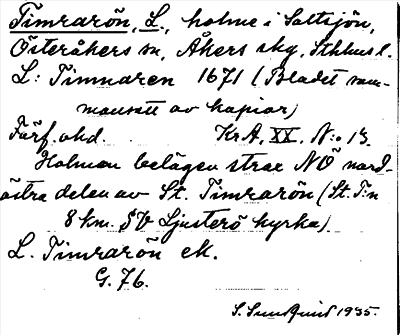 Timrarön, L., holme i Saltsjön,
Österåkers sn, Åkers skg, Sthlms l.
L: Timnaren 1671 (Bladet sam-
mansatt av kopior)
Förf. okd. KrA, XX, N:o 13.
Holmen belägen strax NÖ nord-
östra delen av St. Timrarön (St. T:n
8 km. SV Ljusterö kyrka).
L. Timrarön ek.
G. 76.
S. Sundquist 1935.